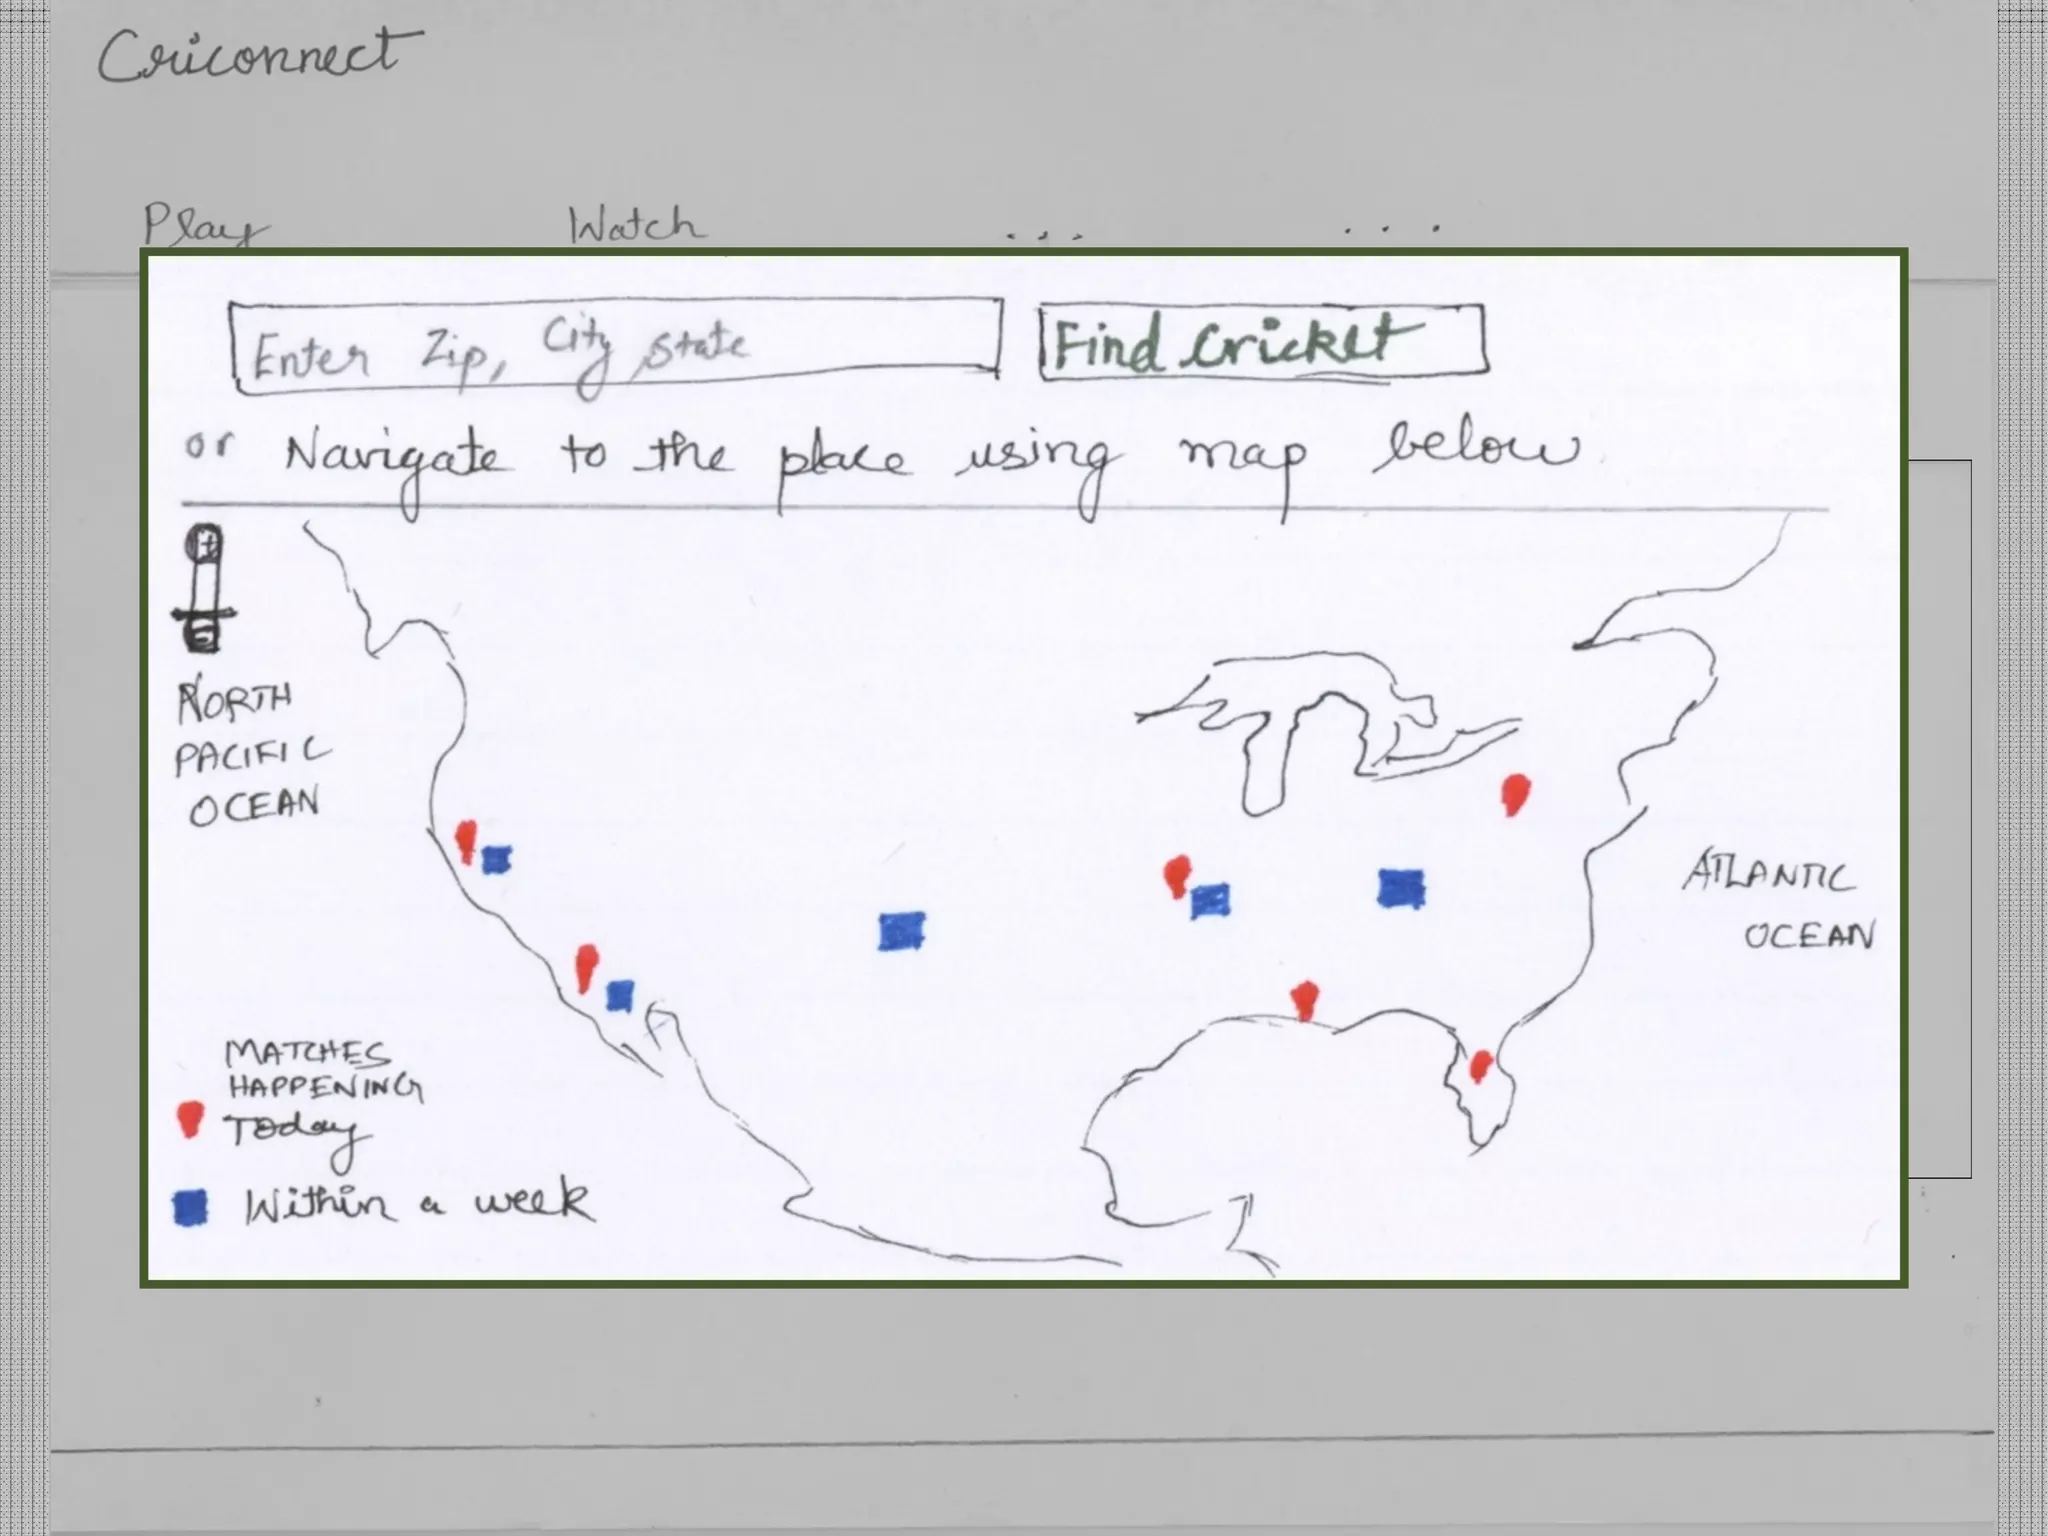 Criconnect
Play Watch ... ...
Enter Zip, City, State
Find Cricket
or Navigate to the place using map below
+
NORTH
PACIFIC
OCEAN
ATLANTIC
OCEAN
MATCHES
HAPPENING
Today
Within a week